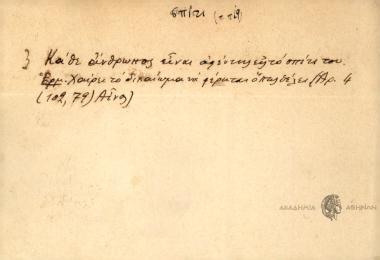 σπίτι
3 Κάθε άνθρωπος είναι αφέντης στό σπίτι του.
Ἑρμ. Χαίρει τό δικαίωμα νά φέρεται όπως θέλει (Αρ. 4
(102, 79) Αἶνος)
ΑΚΑΔΗΜΙΑ ΑΘΗΝΩΝ